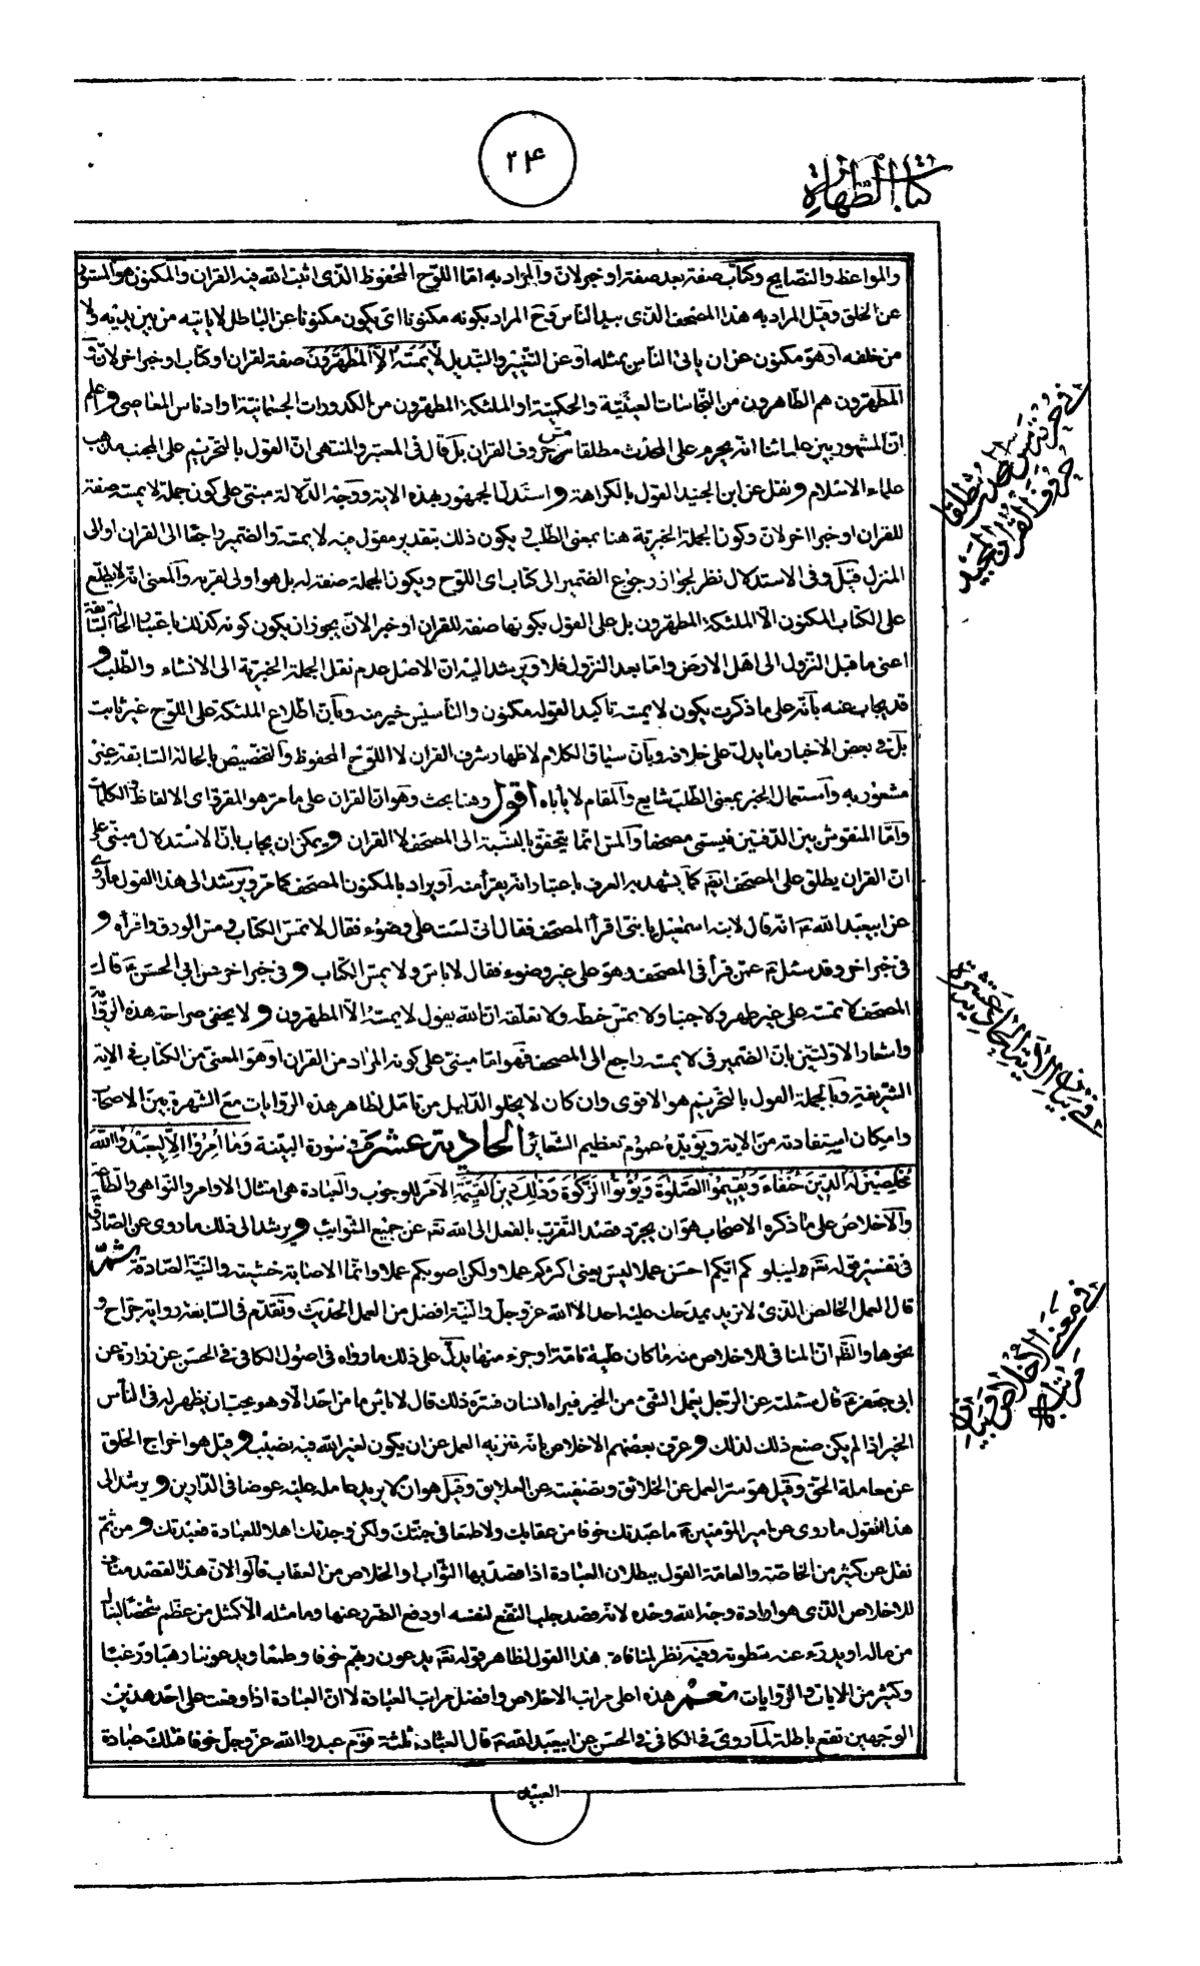 ۲۴
كتاب الطهارة
والمواعظ والنصايح وكتاب صفة بعد صفة او خبر لان والمراد به اما اللوح المحفوظ الذى اثبت الله فيه القران والمكنون هو المستور
عن الخلق وقيل المراد به هذا المصحف الذى بيد الناس وح المراد بكونه مكنونا اى يكون مكنونا عن الباطل لا ياتيه من بين يديه ولا
من خلفه او هو مكنون عن ان ياتى الناس بمثله او عن التغيير والتبديل لا يمسه الا المطهرون صفة لقران او كتاب او خبر اخر لان
المطهرون هم الطاهرون من النجاسات العينية والحكمية او الملئكة المطهرون من الكدورات الجسمانية او ادناس المعاصى واعلم
ان المشهور بين علمائنا انه يحرم على المحدث مطلقا مس حروف القران بل قال فى المعتبر والمنتهى ان القول بالتحريم على الجنب مذهب
علماء الاسلام ونقل عن ابن الجنيد القول بالكراهة واستدل الجمهور بهذه الاية ووجه الدلالة مبنى على كون جملة لا يمسه صفة
للقران او خبرا اخر لان وكون الجملة الخبرية هنا بمعنى الطلب ويكون ذلك بتقدير مقول فيه لا يمسه والضمير راجعا الى القران اوالى
المنزل قيل وفى الاستدلال نظر لجواز رجوع الضمير الى كتاب اى اللوح ويكون الجملة صفة له بل هو اولى لقربه والمعنى انه لا يطلع
على الكتاب المكنون الا الملئكة المطهرون بل على القول بكونها صفة للقران او خبر الان يجوز ان يكون كونه كذلك باعتبار الحالة السابقة
اعنى ما قبل النزول الى اهل الارض واما بعد النزول فلا ويرشد اليه ان الاصل عدم نقل الجملة الخبرية الى الانشاء والطلب و
قد يجاب عنه بانه على ما ذكرت يكون لا يمسه تاكيدا لقوله مكنون والتأسيس خير منه وبان اطلاع الملئكة على اللوح غير ثابت
بل فى بعض الاخبار ما يدل على خلافه وبان سياق الكلام لاظهار شرف القران لا اللوح المحفوظ والتخصيص بالحالة السابقة غير
مشعور به واستعمال الخبر بمعنى الطلب شايع والمقام لا ياباه اقول وهنا بحث وهو ان القران على ما مر هو المقرو اى الالفاظ والكلمات
واما المنقوش بين الدفتين فيسمى مصحفا والمس انما يتحقق بالنسبة الى المصحف لا القران ويمكن ان يجاب بان الاستدلال مبنى على
ان القران يطلق على المصحف ايضا كما يشهد به العرف باعتبار انه يقرأ منه او يراد بالمكنون المصحف كما مر ويرشد الى هذا القول ما روى
عن ابيعبد الله ع انه قال لابنه اسمعيل يا بنى اقرأ المصحف فقال انى لست على وضوء فقال لا تمس الكتاب ومس الورق واقرأه و
فى خبر اخر وقد سئل ع عمن قرأ فى المصحف وهو على غير وضوء فقال لا باس ولا يمس الكتاب وفى خبر اخر عن ابى الحسن ع قال
المصحف لا تمسه على غير طهر ولا جنبا ولا تمس خطه ولا تعلقه ان الله يقول لا يمسه الا المطهرون ولا يخفى صراحة هذه الرواية
واشعار الاولتين بان الضمير فى لا يمسه راجع الى المصحف فهو اما مبنى على كونه المراد من القران او هو المعنى من الكتاب فى الاية
الشريفة وبالجملة القول بالتحريم هو الاقوى وان كان لا يخلو الدليل من تامل لظاهر هذه الروايات مع الشهرة بين الاصحاب
وامكان استفادته من الاية ويؤيده عموم تعظيم الشعائر الحادية عشرة فى سورة البينة وما امروا الا ليعبدوا الله
مخلصين له الدين حنفاء ويقيموا الصلوة ويؤتوا الزكوة وذلك دين القيمة الامر للوجوب والعبادة هى امتثال الاوامر والنواهى والطاعة
والاخلاص على ما ذكره الاصحاب هو ان يجرد قصد التقرب بالفعل الى الله تع عن جميع الشوائب ويرشد الى ذلك ما روى عن الصادق
فى تفسير قوله تع وليبلوكم ايكم احسن عملا ليس يعنى اكثركم عملا ولكن اصوبكم عملا وانما الاصابة خشيته والنية الصادقة ثم
قال العمل الخالص الذى لا تريد يمدحك عليه احد الا الله عز وجل والنية افضل من العمل الحديث وتقدم فى السابقة رواية جراح و
نحوها والظ ان المنافى للاخلاص منه ما كان علة تامة او جزء منها يدل على ذلك ما رواه فى اصول الكافى فى الحسن عن زرارة عن
ابى جعفر ع قال سئلته عن الرجل يعمل الشئ من الخير فيراه انسان فسره ذلك قال لا باس ما من احد الا وهو يحب ان يظهر له فى الناس
الخير اذا لم يكن صنع ذلك لذلك وعرف بعضهم الاخلاص بانه تنزيه العمل عن ان يكون لغير الله فيه نصيب وقيل هو اخراج الخلق
عن معاملة الحق وقيل هو ستر العمل عن الخلائق وتصفيته عن العلايق وقيل هو ان لا يريد عامله عليه عوضا فى الدارين ويرشد الى
هذا القول ما روى عن امير المؤمنين ع ما عبدتك خوفا من عقابك ولا طمعا فى جنتك ولكن وجدتك اهلا للعبادة فعبدتك ومن ثم
نقل عن كثير من الخاصة والعامة القول ببطلان العبادة اذا قصد بها الثواب او الخلاص من العقاب قالوا لان هذا القصد مناف
للاخلاص الذى هو ارادة وجه الله وحده لانه قصد جلب النفع لنفسه او دفع الضرر عنها وما مثله الا كمثل من عظم شخصا لينال
من ماله او يدرء عنه سطوته وفيه نظر لمنافاة هذا القول لظاهر قوله تع يدعون ربهم خوفا وطمعا ويدعوننا رغبا ورهبا
وكثير من الايات والروايات نعم هذه اعلى مراتب الاخلاص وافضل مراتب العبادة لا ان العبادة اذا وقعت على احد هذين
الوجهين تقع باطلة لما روى فى الكافى فى الحسن عن ابيعبد الله ع قال العباد ثلثة قوم عبدوا الله عز وجل خوفا فتلك عبادة
العبيد
فى حرمة مس المحدث مطلقا
حروف القران المجيد
فى بيان الاية الحادية عشرة
فى معنى الاخلاص وبيان
مراتبه